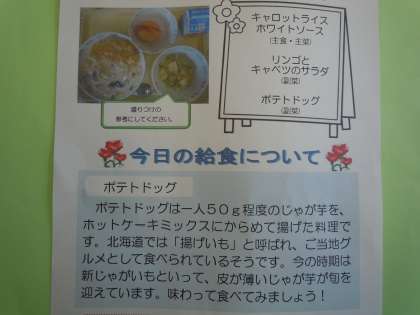 キャロットライス
ホワイトソース
(主食・主菜)
リンゴと
キャベツのサラダ
(副菜)
ポテトドッグ
(副菜)
盛りつけの
参考にしてください。
今日の給食について
ポテトドッグ
ポテトドッグは一人50g程度のじゃが芋を、
ホットケーキミックスにからめて揚げた料理で
す。北海道では「揚げいも」と呼ばれ、ご当地グ
ルメとして食べられているそうです。今の時期は
新じゃがいもといって、皮が薄いじゃが芋が旬を
迎えています。味わって食べてみましょう！